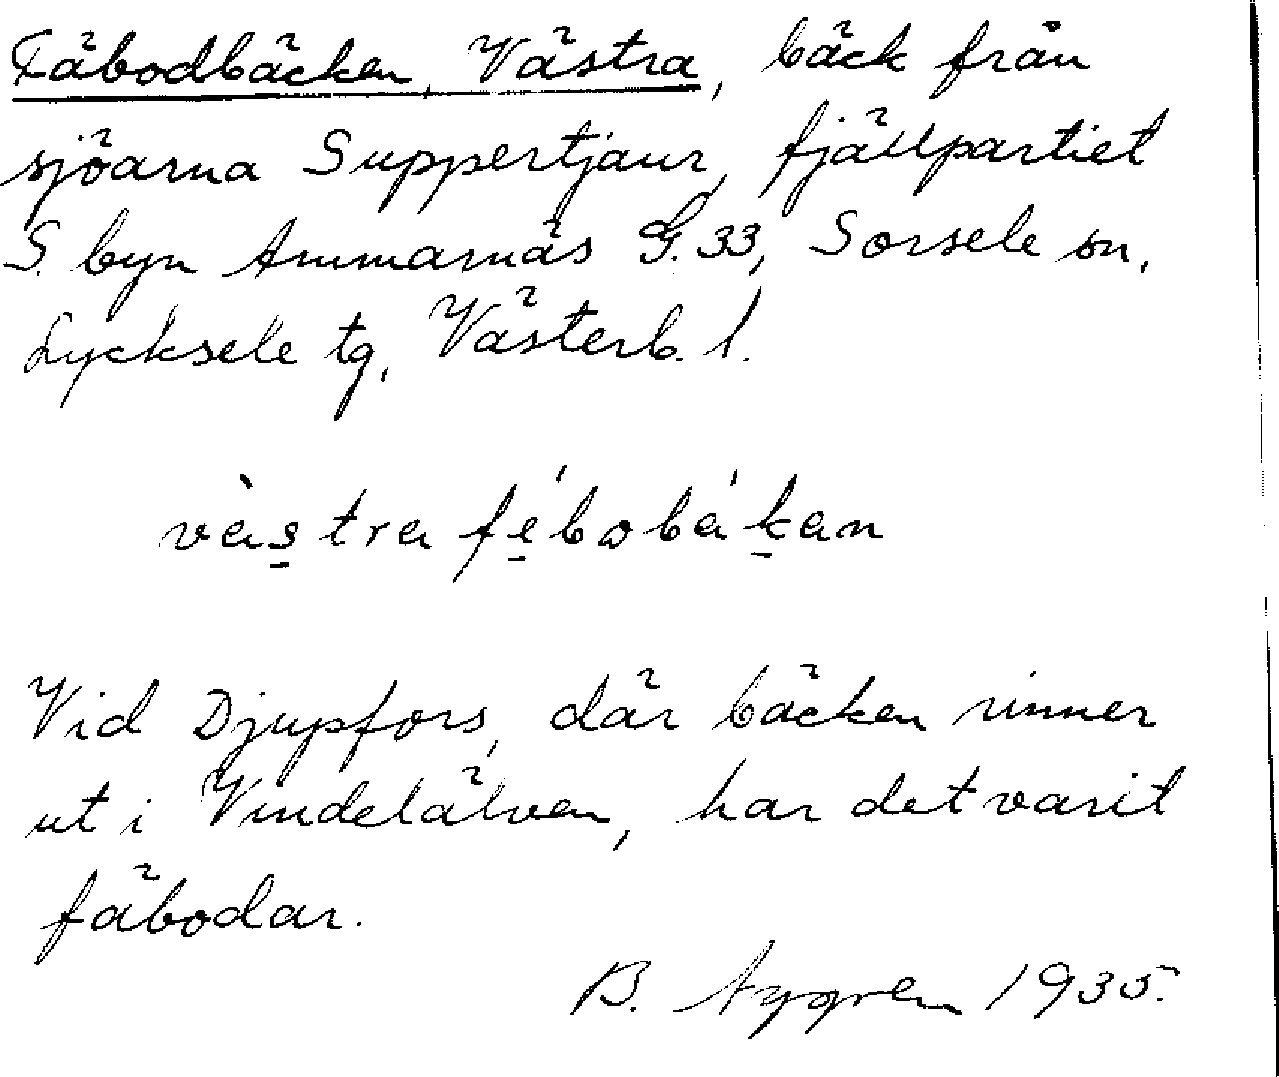 Fäbodbäcken, Västra, bäck från
sjöarna Suppertjaur, fjällpartiet
S. byn Ammarnäs G. 33, Sorsele sn,
Lycksele tg, Västerb. l.
vàstra fébobákan
Vid Djupfors, där bäcken rinner
ut i Vindelälven, har det varit
fäbodar.
B. Nygren 1935.